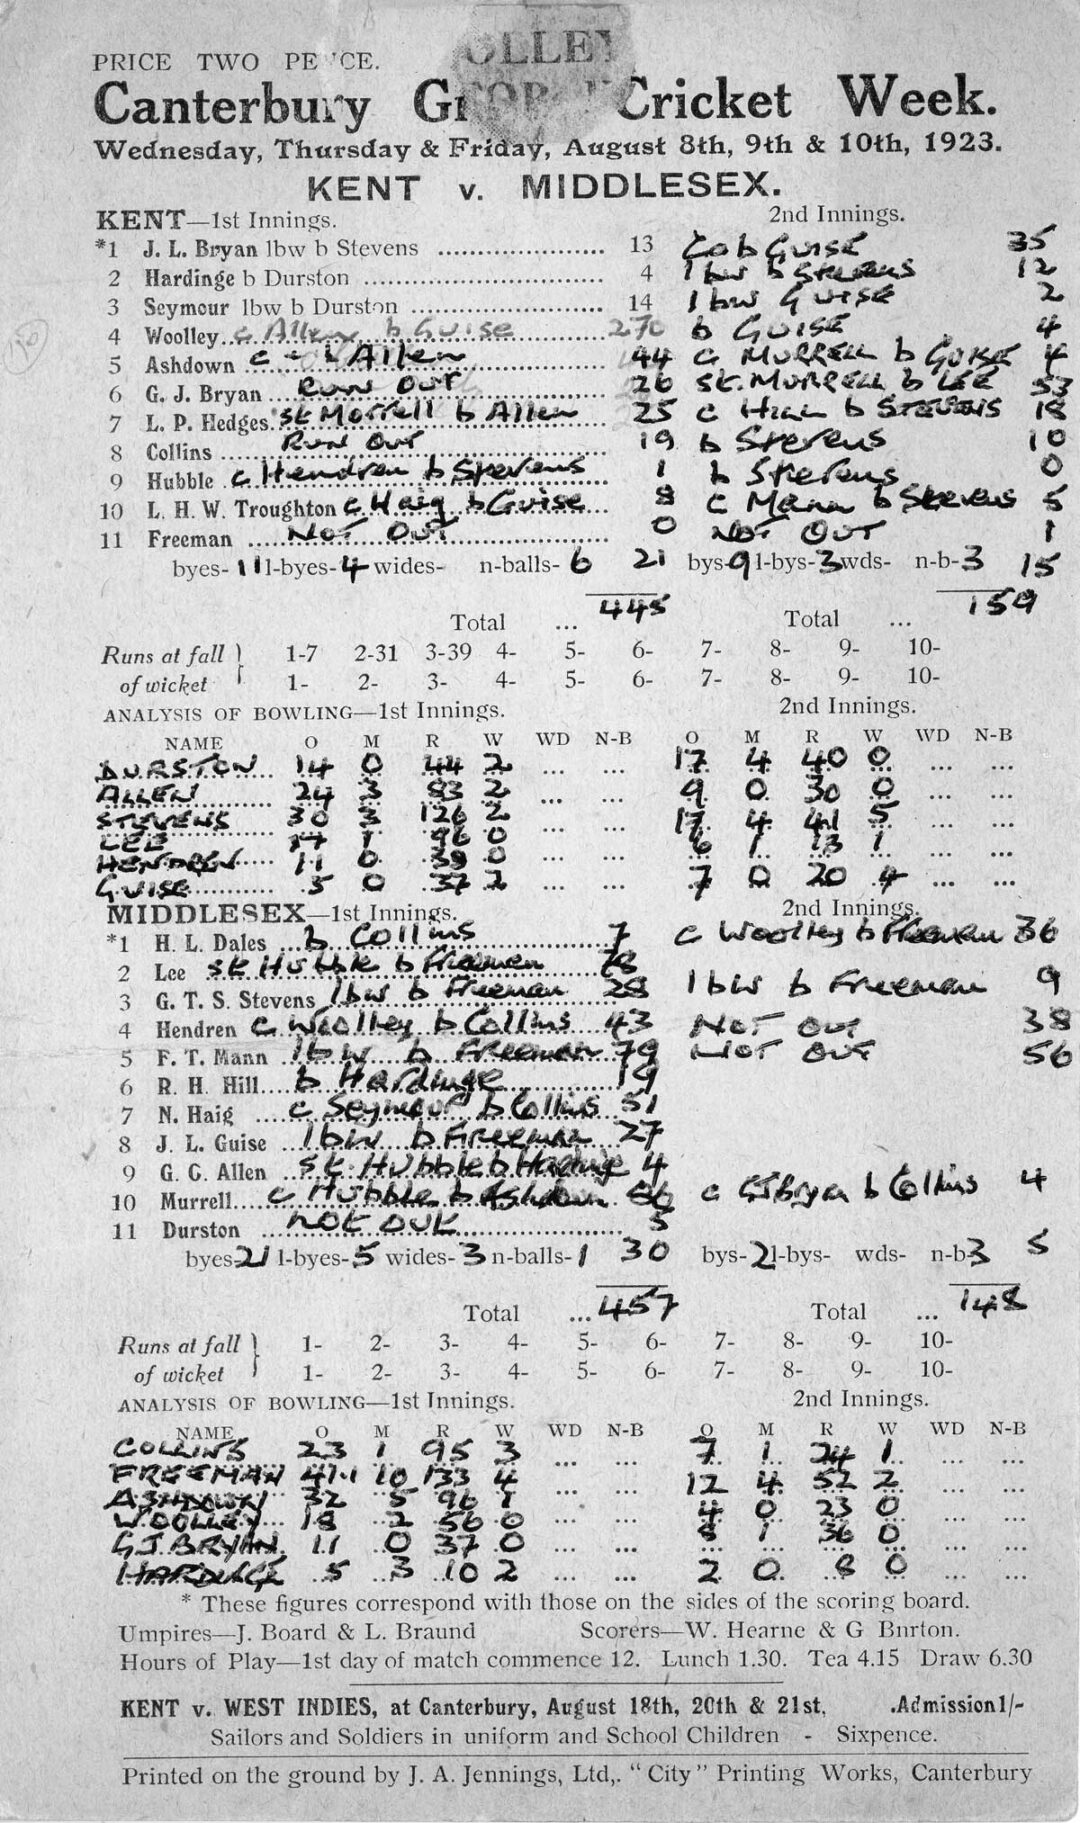 OLLEY
PRICE TWO PE CE.
Canterbury Gr Cricket Week.
Wednesday, Thursday & Friday, August 8th, 9th & 10th, 1923.
KENT v. MIDDLESEX.
KENT—1st Innings. 2nd Innings.
*1 J. L. Bryan lbw b Stevens 13 C o b Guise 35
2 Hardinge b Durston 4 lbw b Stevens 12
3 Seymour lbw b Durston 14 lbw Guise 2
4 Woolley c Allen b Guise 270 b Guise 4
5 Ashdown c - b Allen 44 c Murrell b Guise 4
6 G. J. Bryan Run Out 26 st. Murrell b Lee 53
7 L. P. Hedges st Morrell b Allen 25 c Hill b Stevens 18
8 Collins Run Out 19 b Stevens 10
9 Hubble c Hendren b Stevens 1 b Stevens 0
10 L. H. W. Troughton c Haig b Guise 8 c Mann b Stevens 5
11 Freeman Not Out 0 Not Out 1
byes-11 l-byes-4 wides- n-balls-6 21 bys-9 l-bys-3 wds- n-b-3 15
Total ... 445 Total ... 159
Runs at fall 1-7 2-31 3-39 4- 5- 6- 7- 8- 9- 10-
of wicket 1- 2- 3- 4- 5- 6- 7- 8- 9- 10-
ANALYSIS OF BOWLING—1st Innings. 2nd Innings.
NAME O M R W WD N-B O M R W WD N-B
DURSTON 14 0 44 2 ... ... 17 4 40 0 ... ...
ALLEN 24 3 83 2 ... ... 9 0 30 0 ... ...
STEVENS 30 3 126 2 ... ... 17 4 41 5 ... ...
LEE 17 1 96 0 ... ... 6 1 13 1 ... ...
HENDREN 11 0 38 0 ... ... 
GUISE 5 0 37 2 ... ... 7 0 20 4 ... ...
MIDDLESEX—1st Innings. 2nd Innings.
*1 H. L. Dales b Collins 7 c Woolley b Freeman 36
2 Lee st Hubble b Freeman 78
3 G. T. S. Stevens lbw b Freeman 28 lbw b Freeman 9
4 Hendren c Woolley b Collins 43 Not Out 38
5 F. T. Mann lbw b Freeman 79 Not Out 56
6 R. H. Hill b Hardinge 19
7 N. Haig c Seymour b Collins 51
8 J. L. Guise lbw b Freeman 27
9 G. C. Allen st. Hubble b Hardinge 4
10 Murrell c Hubble b Ashdown c GJ Bryan b Collins 4
11 Durston Not Out 5
byes-21 l-byes-5 wides-3 n-balls-1 30 bys-2 l-bys- wds- n-b-3 5
Total ... 457 Total ... 148
Runs at fall 1- 2- 3- 4- 5- 6- 7- 8- 9- 10-
of wicket 1- 2- 3- 4- 5- 6- 7- 8- 9- 10-
ANALYSIS OF BOWLING—1st Innings. 2nd Innings.
NAME O M R W WD N-B O M R W WD N-B
COLLINS 23 1 95 3 ... ... 7 1 24 1 ... ...
FREEMAN 41.1 10 133 4 ... ... 12 4 52 2 ... ...
ASHDOWN 32 5 96 1 ... ... 4 0 23 0 ... ...
WOOLLEY 18 2 56 0 ... ... 8 1 36 0 ... ...
GJ BRYAN 11 0 37 0 ... ...
HARDINGE 5 3 10 2 ... ... 2 0 8 0 ... ...
* These figures correspond with those on the sides of the scoring board.
Umpires—J. Board & L. Braund Scorers—W. Hearne & G Bnrton.
Hours of Play—1st day of match commence 12. Lunch 1.30. Tea 4.15 Draw 6.30
KENT v. WEST INDIES, at Canterbury, August 18th, 20th & 21st, .Admission1/-
Sailors and Soldiers in uniform and School Children - Sixpence.
Printed on the ground by J. A. Jennings, Ltd,. "City" Printing Works, Canterbury